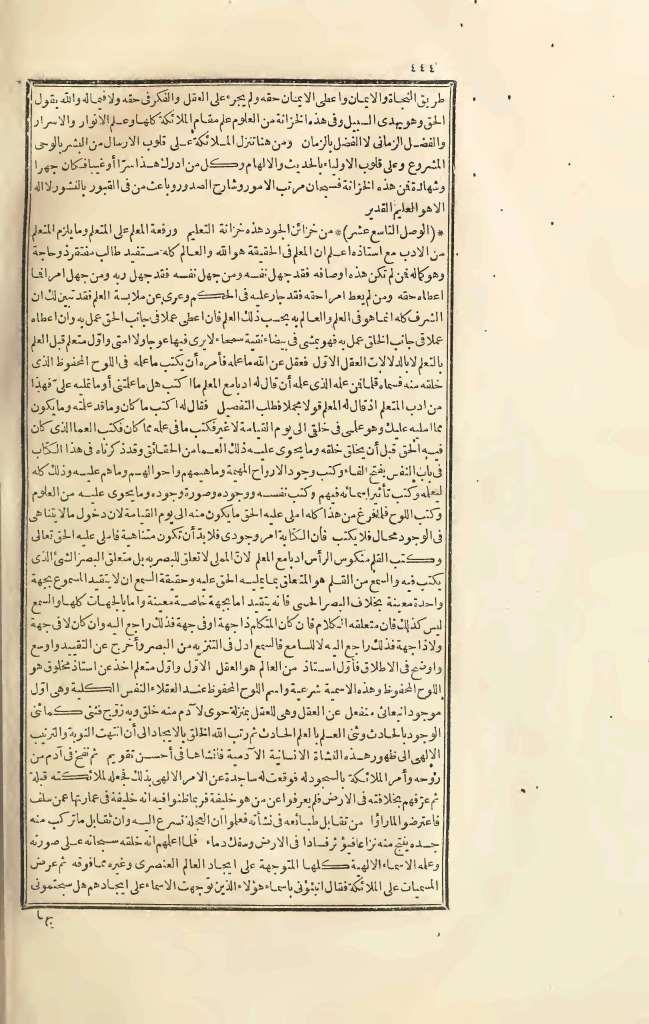 ٤٤٤
طريق النجاة والايمان واعطى الايمان حقه ولم يجرء على العقل والفكر فى حقه ولا فيماله والله يقول
الحق وهو يهدى السبيل وفى هذه الخزانة من العلوم علم مقام الملائكة كلها وعلم الانوار والاسرار
والفضل الزمانى لا الفضل بالزمان ومن هنا تنزل الملائكة على قلوب الارسال من البشر بالوحى
المشروع وعلى قلوب الاولياء بالحديث والالهام وكل من ادرك هذا سرّا أو غيبا فكان جهرا
وشهادة فمن هذه الخزانة فسبحان مرتب الامور وشارح الصدور وباعث من فى القبور بالنشور لا اله
الا هو العليم القدير
*(الوصل التاسع عشر)* من خزائن الجود هذه خزانة التعليم ورفعة المعلم على المتعلم وما يلزم المتعلم
من الادب مع استاذه اعلم ان المعلم فى الحقيقة هو الله والعالم كله مستفيد طالب مفتقر ذو حاجة
وهو كماله فمن لم تكن هذه اوصافه فقد جهل نفسه ومن جهل نفسه فقد جهل ربه ومن جهل امرا فما
اعطاه حقه ومن لم يعط امرا حقه فقد جار عليه فى الحكم وعرى عن ملابسة العلم فقد تبين لك ان
الشرف كله انما هو فى العلم والعالم به بحسب ذلك العلم فان اعطى عملا فى جانب الحق عمل به وان اعطاه
عملا فى جانب الخلق عمل به فهو يمشى فى بيضاء نقية سمحاء لا يرى فيها عوجا ولا امتا واوّل متعلم قبل العلم
بالتعلم لا بالدلالات العقل الاوّل فعقل عن الله ما علمه فأمره أن يكتب ما علمه فى اللوح المحفوظ الذى
خلقه منه فسماه قلما فمن علمه الذى علمه أن قال له ادبا مع المعلم ما اكتب هل ما علمتنى أو ما تمليه علىّ فهذا
من ادب المتعلم اذ قال له المعلم قولا مجملا فطلب التفصيل فقال له اكتب ما كان وما قد علمته وما يكون
مما امليه عليك وهو علمى فى خلقى الى يوم القيامة لا غير فكتب ما فى علمه مما كان فكتب العما الذى كان
فيه الحق قبل أن يخلق خلقه وما يحوى عليه ذلك العما من الحقائق وقد ذكرناه فى هذا الكتاب
فى باب النفس بفتح الفاء وكتب وجود الارواح المهيمة وما هيمهم واحوالهم وما هم عليه وذلك كله
ليعلمه وكتب تأثير اسمائه فيهم وكتب نفسه ووجوده وصورة وجوده وما يحوى عليه من العلوم
وكتب اللوح فلما فرغ من هذا كله املى عليه الحق ما يكون منه الى يوم القيامة لان دخول ما لا يتناهى
فى الوجود محال فلا يكتب فأن الكتابة امر وجودى فلا بدّ أن تكون متناهية فاملى عليه الحق تعالى
وكتب القلم منكوس الرأس ادبا مع المعلم لانّ المولى لا تعلق للبصر به بل متعلق البصر الشئ الذى
يكتب فيه والسمع من القلم هو المتعلق بما يمليه الحق عليه وحقيقة السمع ان لا يتقيد المسموع بجهة
واحدة معينة بخلاف البصر الحسى فانه يتقيد اما بجهة خاصة معينة واما بالجهات كلها والسمع
ليس كذلك فان متعلقه الكلام فان كان المتكلم ذا جهة او فى جهة فذلك راجع اليه وان كان لا فى جهة
ولا ذا جهة فذلك راجع اليه لا للسامع فالسمع ادل فى التنزيه من البصر وأخرج عن التقييد واوسع
واوضح فى الاطلاق فأول استاذ من العالم هو العقل الاوّل واوّل متعلم اخذ عن استاذ مخلوق هو
اللوح المحفوظ وهذه الاسمية شرعية واسم اللوح المحفوظ عند العقلاء النفس الكلية وهى اوّل
موجود انبعاثى منفعل عن العقل وهى للعقل بمنزلة حوى لآدم منه خلق وبه زوّج فثنى كما ثنى
الوجود بالحادث وثنى العلم بالعلم الحادث ثم رتب الله الخلق بالايجاد الى أن انتهت النوبة والترتيب
الالهى الى ظهور هذه النشأة الانسانية الآدمية فانشاها فى أحسن تقويم ثم نفخ فى آدم من
روحه وأمر الملائكة بالسجود له فوقعت له ساجدة عن الامر الالهى بذلك فجعله لملائكته قبلة
ثم عرّفهم بخلافته فى الارض فلم يعرفوا عن من هو خليفة فربما ظنوا فيه انه خليفة فى عمارتها عمن سلف
فاعترضوا لما راوْا من تقابل طبائعه فى نشأته فعلموا ان العجلة تسرع اليه وان تقابل ما تركب منه
جسده ينتج منه نزاعا فيؤثر فسادا فى الارض وسفك دماء فلما اعلمهم انه خلقه سبحانه على صورته
وعلمه الاسماء الالهية كلها المتوجهة على ايجاد العالم العنصرى وغيره مما فوقه ثم عرض
المسميات على الملائكة فقال انبئونى باسماء هؤلاء الذين توجهت الاسماء على ايجادهم هل سبحتمونى
بها